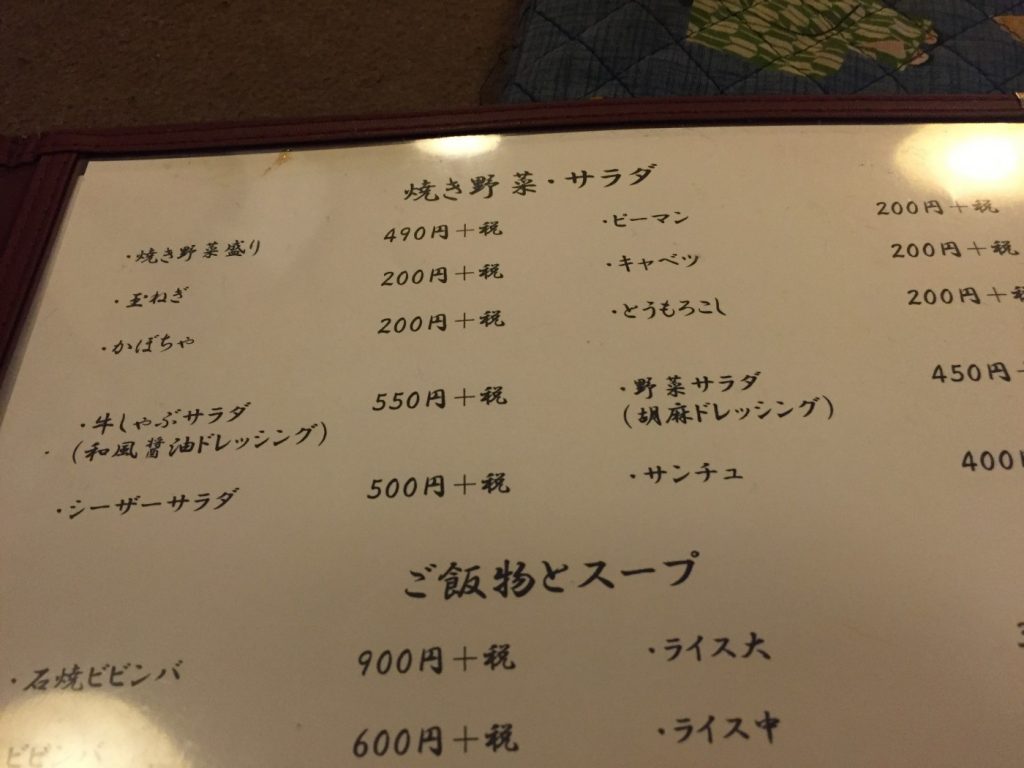 焼き野菜・サラダ
・焼き野菜盛り 490円＋税
・ピーマン 200円＋税
・玉ねぎ 200円＋税
・キャベツ 200円＋税
・かぼちゃ 200円＋税
・とうもろこし 200円＋税
・牛しゃぶサラダ 550円＋税
(和風醤油ドレッシング)
・野菜サラダ 450円
(胡麻ドレッシング)
・シーザーサラダ 500円＋税
・サンチュ 400
ご飯物とスープ
・石焼ビビンバ 900円＋税
・ライス大
ビビンバ 600円＋税
・ライス中